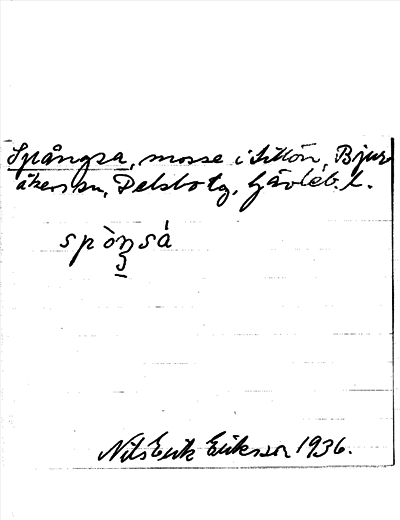 Spångsa, mosse i Sillön, Bjur-
åkers sn, Delsbo tg, Gävleb. l.
spòŋsá
Nils Erik Eriksson 1936.